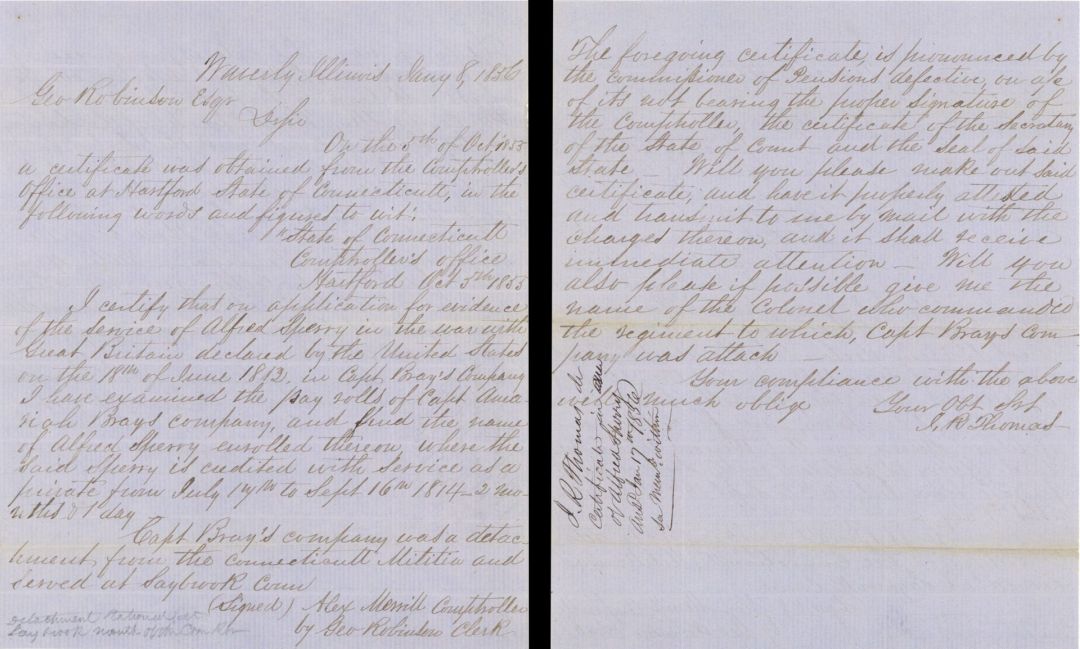 Waverly Illinois Jany 8, 1856
Geo Robinson Esqr
On the 5th of Oct 1855
a certificate was obtained from the Comptroller's
Office at Hartford State of Connecticutt, in the
following words and figures to wit:
"State of Connecticutt
Comptroller's office
Hartford Oct 5th 1855
I certify that on application for evidence
of the service of Alfred Sperry in the war with
Great Britain declared by the United States
on the 18th of June 1812, in Capt Bray's Company
I have examined the pay rolls of Capt Ama-
riah Brays company, and find the name
of Alfred Sperry enrolled thereon where the
said Sperry is credited with service as a
private from July to Sept 16th 1814 - 2 mo-
nths 1 day
Capt Bray's company was a detac-
hment from the connecticutt Militia and
served at Saybrook Conn
(Signed) Alex Merrill Comptroller
by Geo Robinson Clerk
detachment stationed at
Saybrook mouth of the Con Riv
The foregoing certificate, is pronounced by
the Commissioner of Pensions defective, on a/c
of its not bearing the proper signature of
the Comptroller, the certificate of the Secretary
of the State of Connt and the seal of said
state - Will you please make out said
certificate, and have it properly attested
and transmit to me by mail with the
charges thereon, and it shall receive
immediate attention - Will you
also please if possible give me the
name of the Colonel who commanded
the regiment to which, Capt Brays Com-
pany was attach -
Your compliance with the above
will much oblige Your Obt Svt
J. R Thomas
J. R Thomas
Certificate in
of Alfred Sperry
ansd Jan 17th 1856